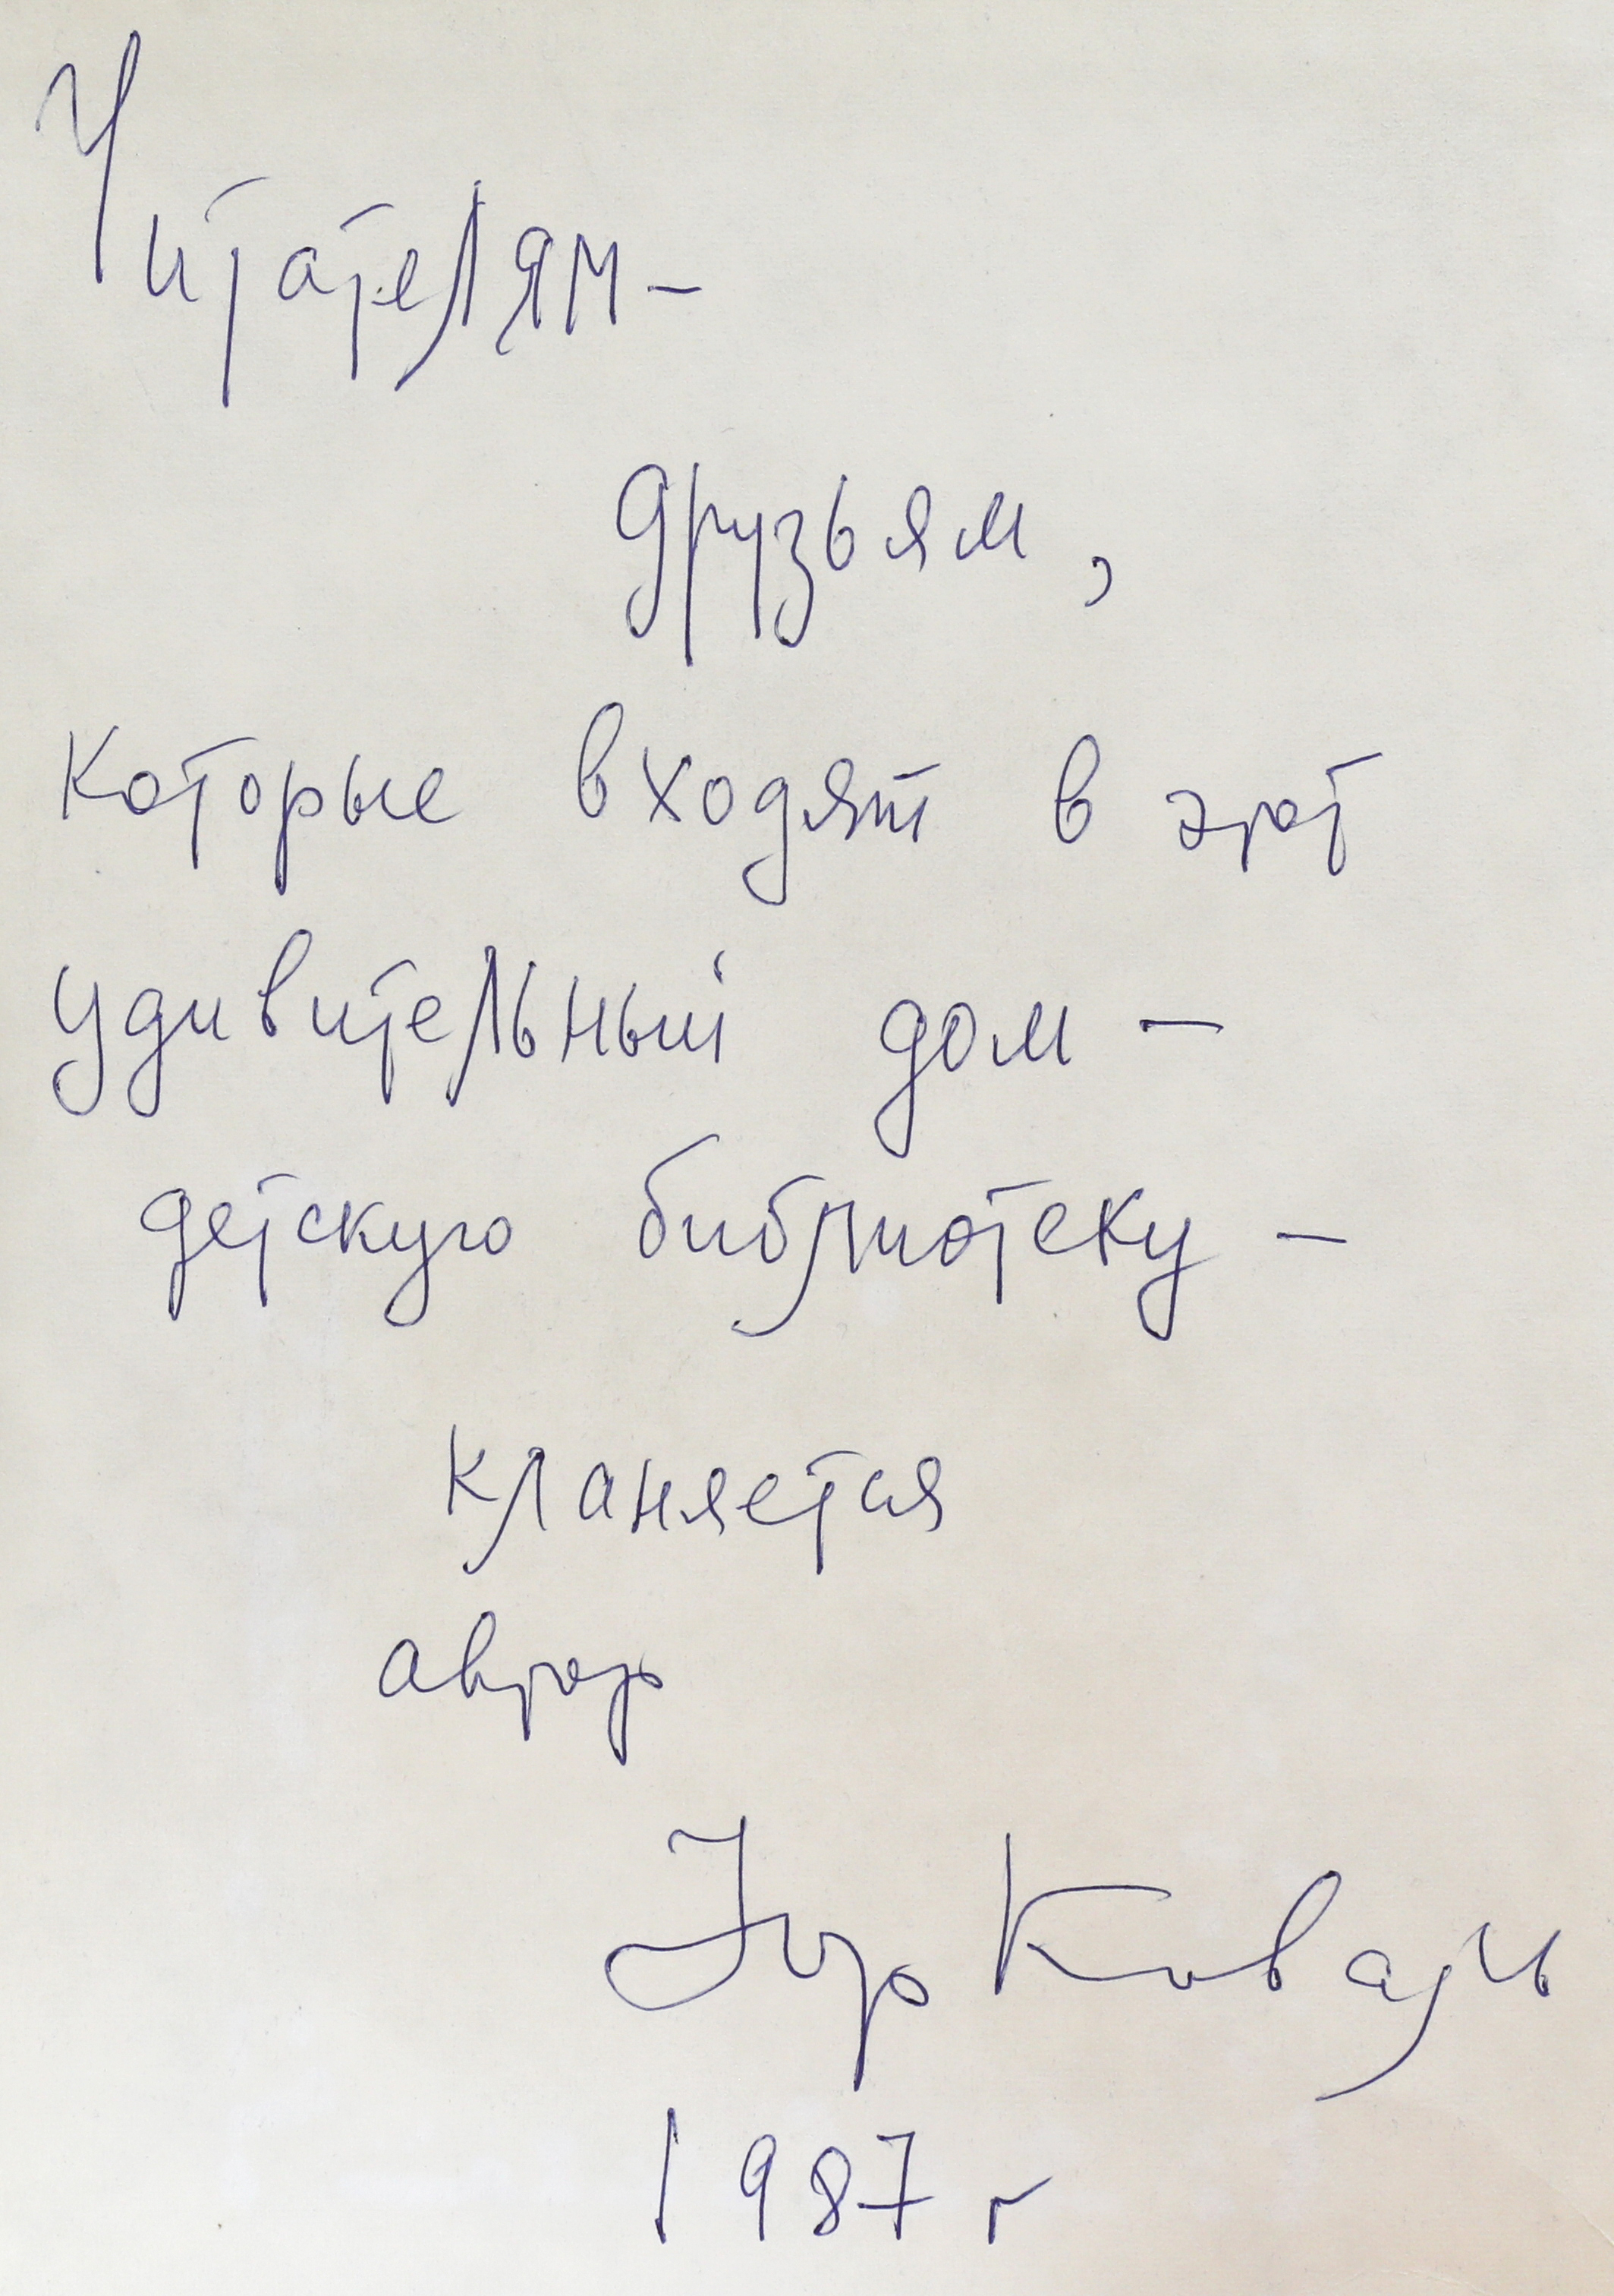 Читателям –
друзьям,
которые входят в этот
удивительный дом –
детскую библиотеку –
кланяется
автор
Юр Коваль
1987 г